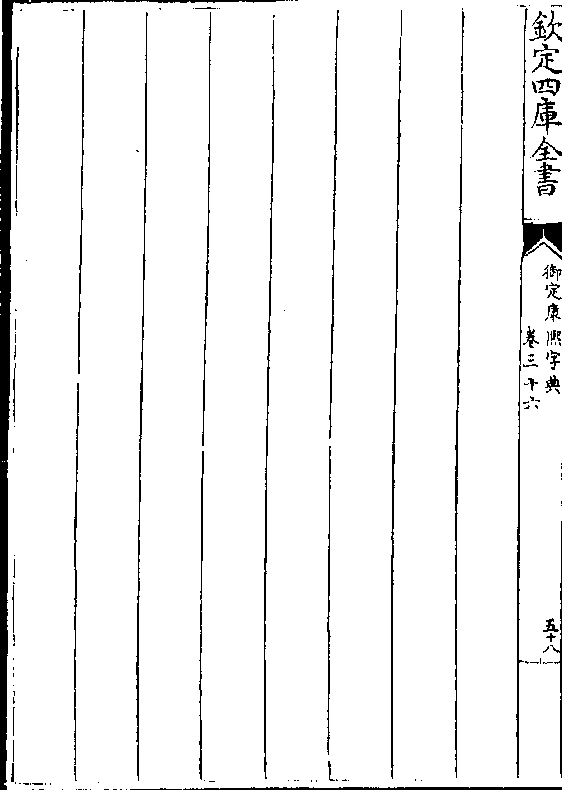 欽定四庫全書
御定康熙字典
卷三十六
五十八